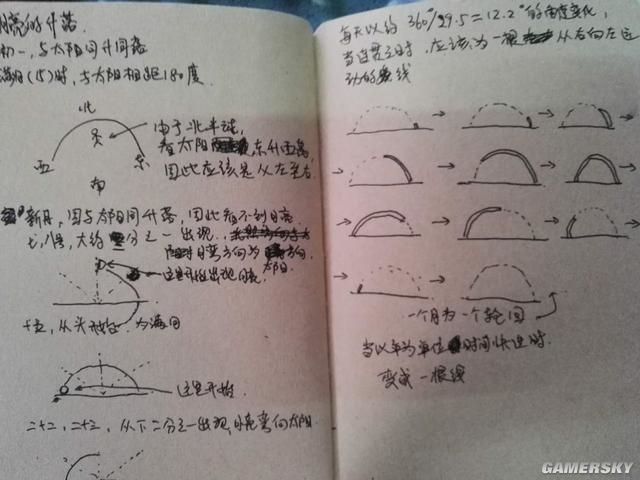 月亮的升落.
初一,与太阳同升同落
满月(15)时,与太阳相距180度.
北
西
东
南
由于北半球,
看太阳东升西落,
因此应该是从左至右
新月,因与太阳同升落,因此看不到月亮
七、八号,大约二分之一出现.
月弯方向为
太阳.
这里开始出现月亮
十五,从头开始 为满月
这里开始.
二十二,二十三,从下二分之一出现,月亮弯向太阳.
每天以约360°/29.5=12.2°的角度变化,
当连贯之时,应该为一根从右向左运
动的线
一个月为一个轮回
当以年为单位时间快进时.
变成一根线
GAMERSKY